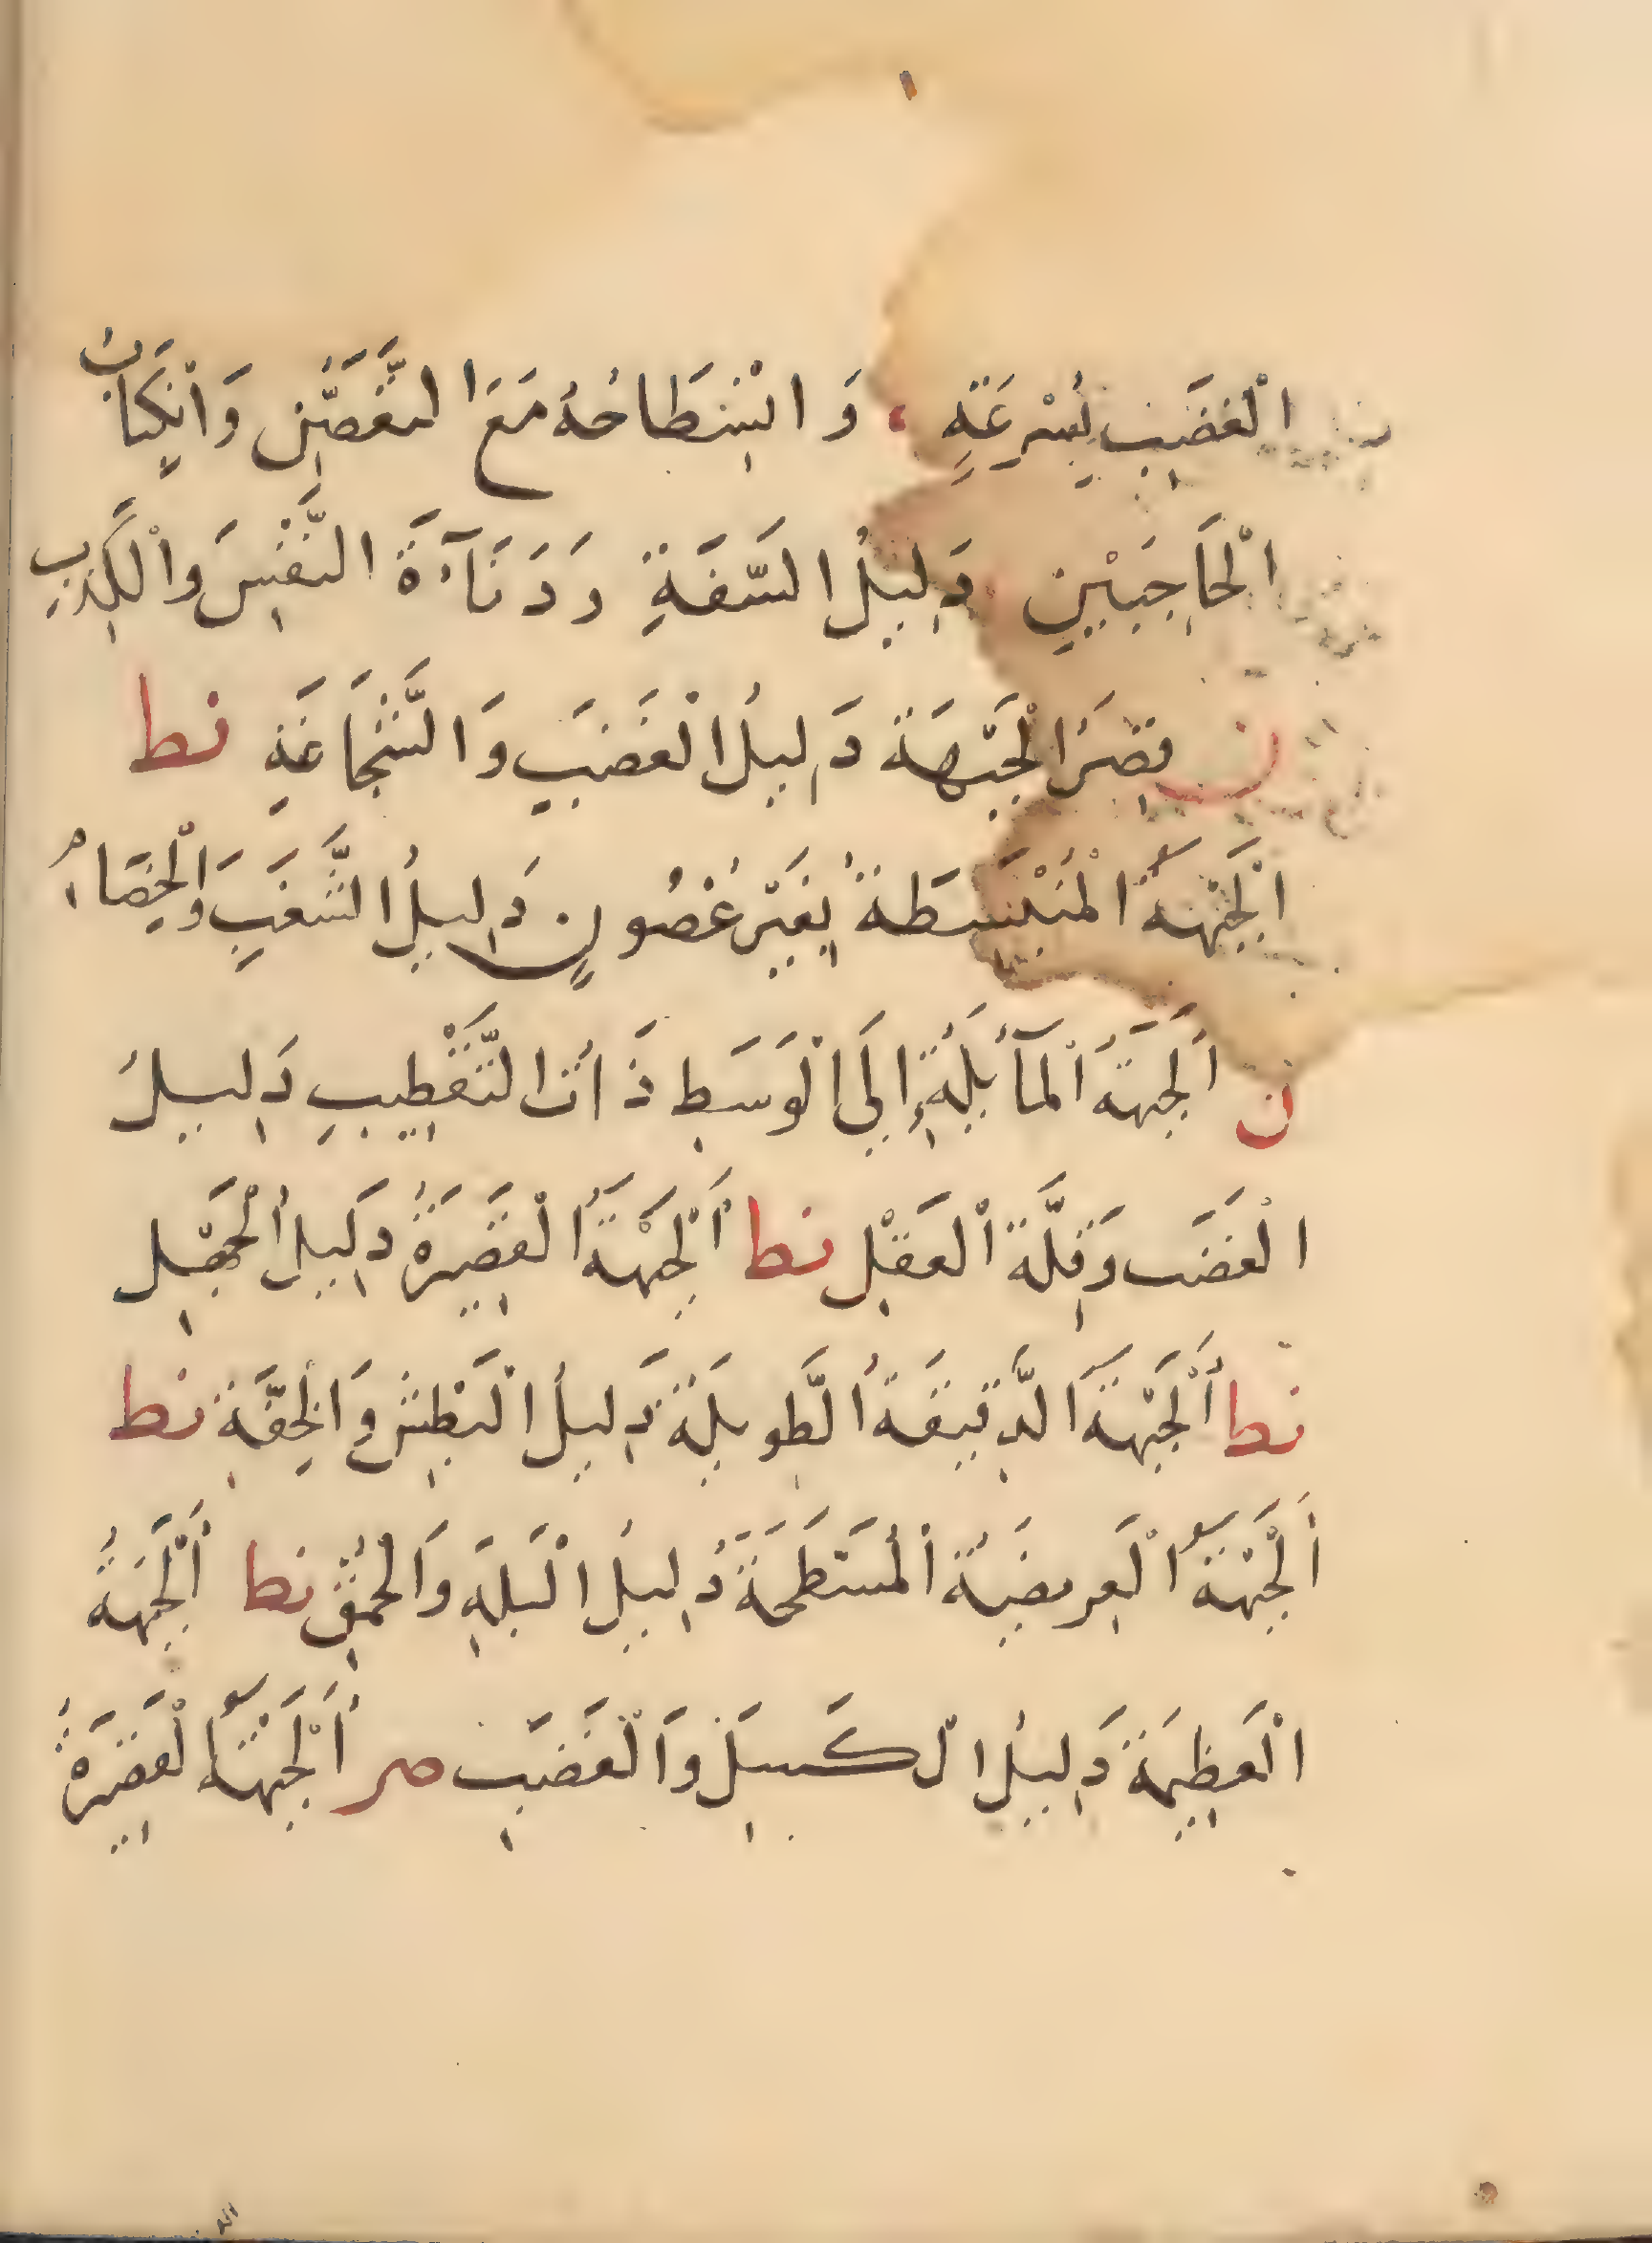 الْغَضَبِ بِسُرْعَةٍ ، وَانْبِطَاحُهُ مَعَ التَّغَضُّنِ وَانْكِبَابُ
الْحَاجِبَيْنِ دَلِيلُ السَّفَهِ وَدَنَآءَةَ النَّفْسِ وَالْكَذِبِ
ن قِصَرُ الْجَبْهَةِ دَلِيلُ الْغَضَبِ وَالشَّجَاعَةِ نط
اَلْجَبْهَةُ الْمُنْبَسِطَةُ بِغَيْرِ غُضُونٍ دَلِيلُ الشَّغَبِ وَالْخِصَامِ
ن اَلْجَبْهَةُ الْمَآئِلَةُ إِلَى الْوَسَطِ ذَاتُ التَّقْطِيبِ دَلِيلُ
الْغَضَبِ وَقِلَّةِ الْعَقْلِ نط اَلْجَبْهَةُ الْقَصِيرَةُ دَلِيلُ الْجَهْلِ
نط اَلْجَبْهَةُ الدَّقِيقَةُ الطَّوِيلَةُ دَلِيلُ الْبَطْشِ وَالْخِفَّةِ نط
اَلْجَبْهَةُ الْعَرِيضَةُ الْمُسَطَّحَةُ دَلِيلُ الْبَلَهِ وَالْحُمْقِ نط اَلْجَبْهَةُ
الْعَظِيمَةُ دَلِيلُ الْكَسَلِ وَالْغَضَبِ صر اَلْجَبْهَةُ الْقَصِيرَةُ